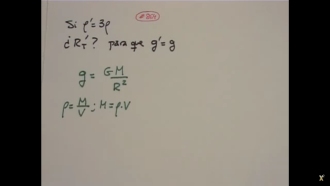 Si ρ' = 3ρ
¿R_T'? para que g' = g
g = GM / R²
ρ = M/V ; M = ρ·V